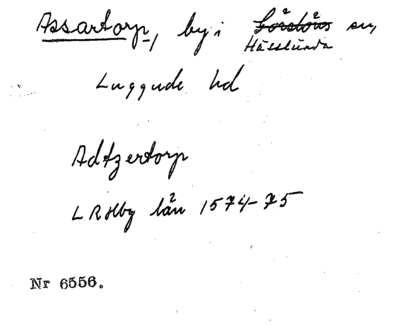 Assartorp, by i Görslövs sn,
Hässlunda
Luggude hd
Adtzertorp
L R Hby län 1574-75
Nr 6556.